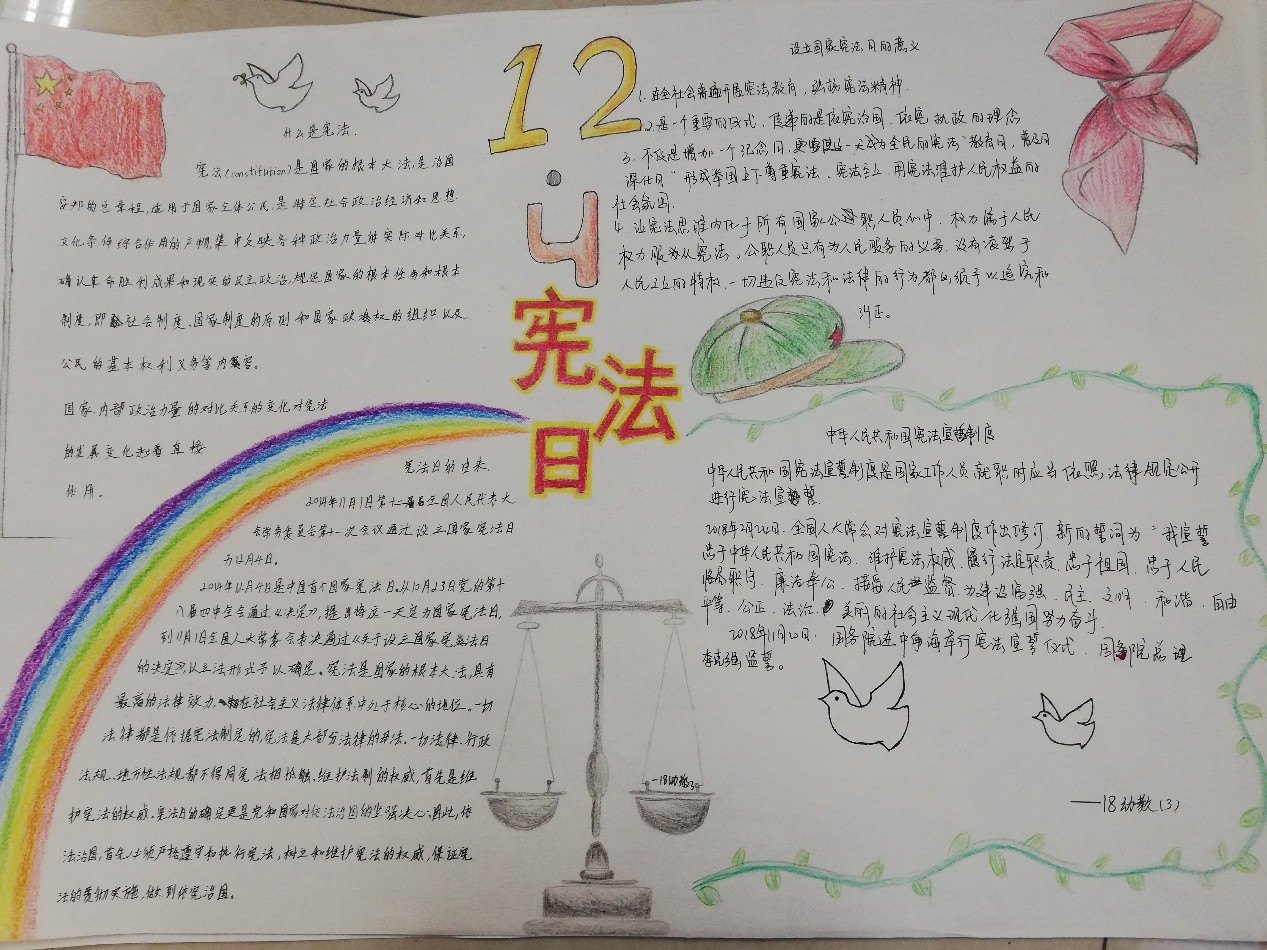 12
·
4
宪
法
日
什么是宪法.
宪法(constitution)是国家的根本大法,是治国
安邦的总章程,适用于国家全体公民,是特定社会政治经济和思想
文化条件综合作用的产物,集中反映各种政治力量的实际对比关系,
确认革命胜利成果和现实的民主政治,规定国家的根本任务和根本
制度,即社会制度、国家制度的原则和国家政权的组织以及
公民的基本权利义务等内容。
国家内部政治力量的对比关系的变化对宪法
的发展变化起着直接
作用。
宪法日的由来.
2014年11月1日第十二届全国人民代表大
会常务委员会第十一次会议通过设立国家宪法日
为12月4日。
2014年12月4日是中国首个国家宪法日.从10月23日党的第十
八届四中全会通过《决定》,提出将这一天定为国家宪法日,
到11月1日全国人大常委会表决通过《关于设立国家宪法日
的决定》,以立法形式予以确定。宪法是国家的根本大法,具有
最高的法律效力.在社会主义法律体系中处于核心的地位。一切
法律都是依据宪法制定的,宪法是大部分法律的母法。一切法律.行政
法规、地方性法规都不得同宪法相抵触、维护法制的权威,首先是维
护宪法的权威.宪法日的确定更是党和国家对依法治国的坚强决心.因此,依
法治国,首先必须严格遵守和执行宪法,树立和维护宪法的权威,保证宪
法的贯彻实施,做到依宪治国。
设立国家宪法日的意义
1.在全社会普遍开展宪法教育,弘扬宪法精神.
2.是一个重要的仪式.传递的是依宪治国.依宪执政的理念
3.不仅是增加一个纪念日,更要使这一天成为全民的宪法"教育日,普及日
深化日"形成举国上下尊重宪法、宪法至上.用宪法维护人民权益的
社会氛围.
4.让宪法思维内化于所有国家公职人员心中.权力属于人民
权力服从宪法。公职人员只有为人民服务的义务.没有凌驾于
人民之上的特权.一切违反宪法和法律的行为都必须予以追究和
纠正。
中华人民共和国宪法宣誓制度
中华人民共和国宪法宣誓制度是国家工作人员就职时应当依照,法律规定公开
进行宪法宣誓.
2018年2月24日.全国人大常会对宪法宣誓制度作出修订 新的誓词为"我宣誓
忠于中华人民共和国宪法.维护宪法权威.履行法定职责.忠于祖国.忠于人民
恪尽职守.廉洁奉公.接受人民监督.为建设富强.民主.文明.和谐.自由
平等.公正.法治.美丽的社会主义现代化强国努力奋斗.
2018年11月20日.国务院进中南海举行宪法宣誓仪式.国务院总理
李克强监誓。
——18幼教(3)
—18幼教3